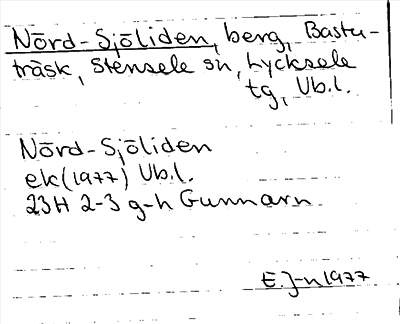 Nörd-Sjöliden, berg, Bastu-
träsk, Stensele sn, Lycksele
tg, Vb.l.
Nörd-Sjöliden
ek (1977) Vb.l.
23H 2-3 g-h Gunnarn.
E. J-n 1977